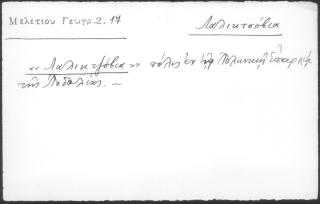 Μελετίου Γεωγρ. 2. 17
Λαλικτσόβια
«Λαλικτζόβια» πόλις ἐν τῇ Πολωνικῇ Ἐπαρχίᾳ
τῆς Ποδολίας. —